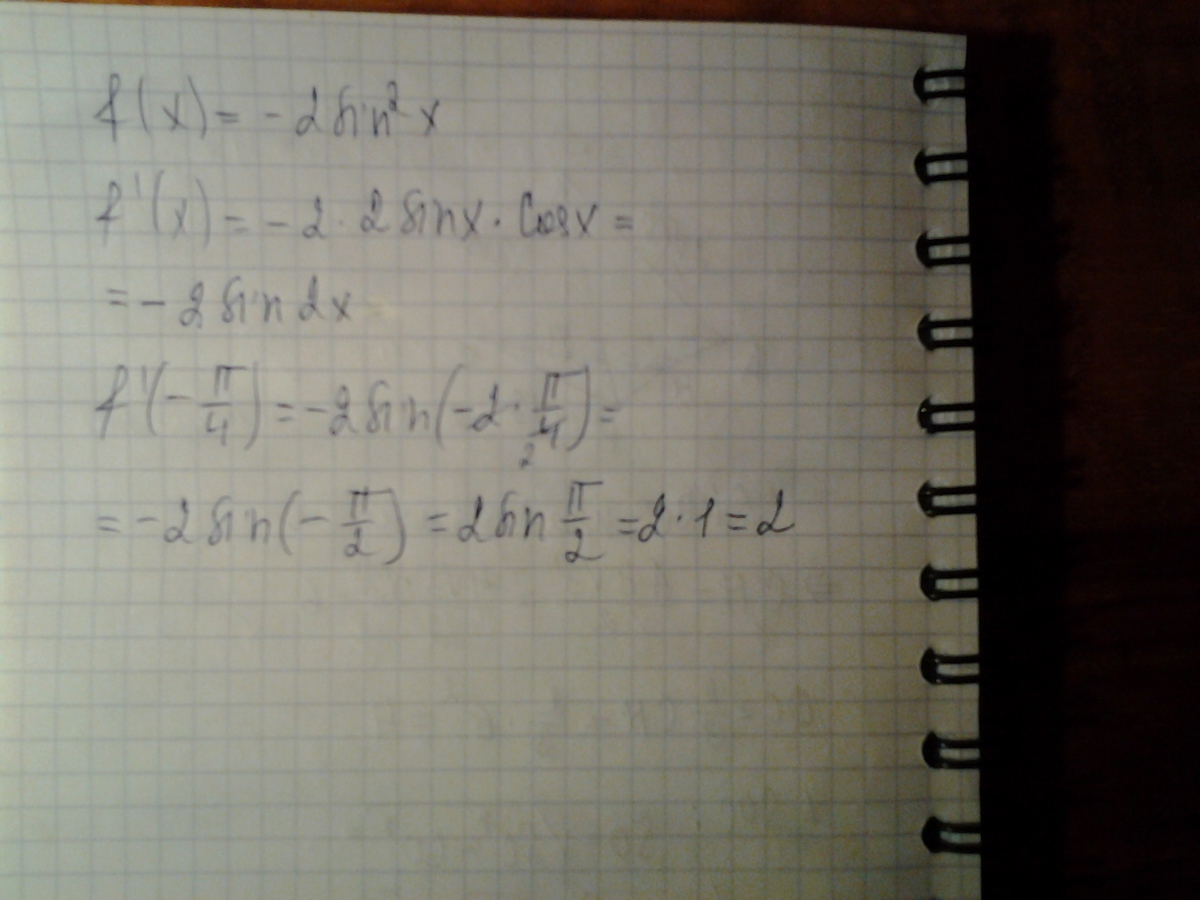 f(x) = -2 sin² x
f'(x) = -2 · 2 sin x · cos x =
= -2 sin 2x
f'(-π/4) = -2 sin(-2 · π/4) =
2
= -2 sin(-π/2) = 2 sin π/2 = 2 · 1 = 2